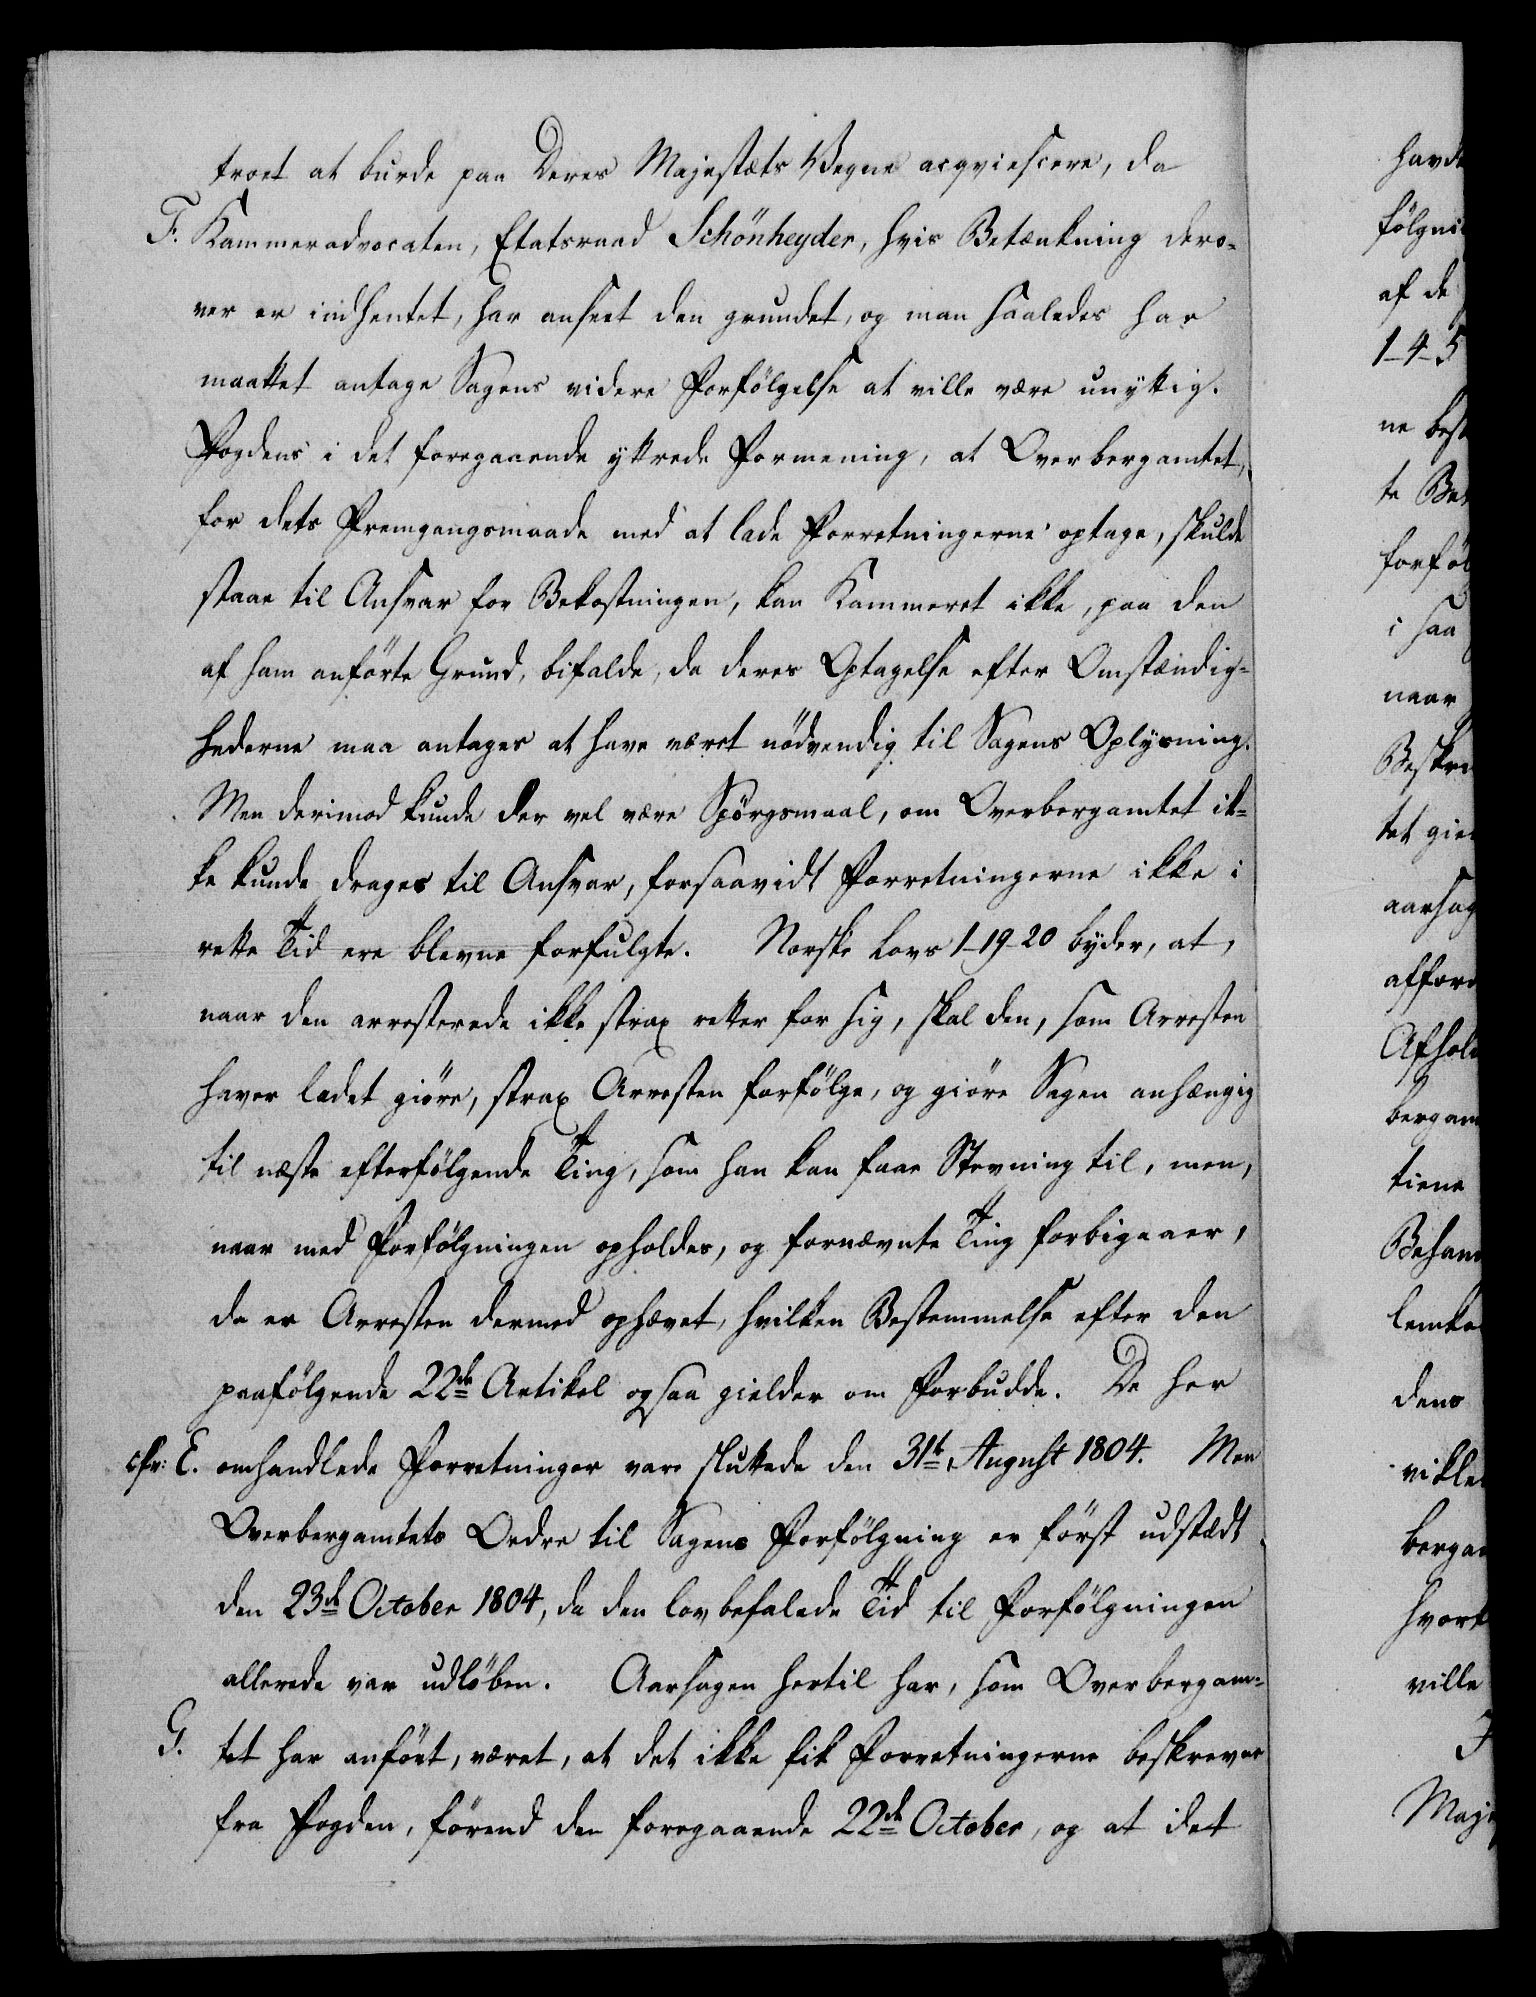 troet at burde paa Deres Majestæts Vegne acqviescere, da
F. Kammeradvocaten, Etatsraad Schönheyder, hvis Betænkning dero-
ver er indhentet, har anseet den grundet, og man saaledes har
maattet antage Sagens videre Forfölgelse at ville være unÿttig.
Fogdens i det foregaaende ÿttrede Formening, at Overbergamtet,
for dets Fremgangsmaade med at lade Forretningerne optage, skulde
staae til Ansvar for Bekostningen, kan Kammeret ikke, paa den
af ham anförte Grund, bifalde, da deres Optagelse efter Omstændig-
hederne maa antages at have været nödvendig til Sagens Oplÿsning.
Men derimod kunde der vel være Spörgsmaal, om Overbergamtet ik-
ke kunde drages til Ansvar, forsaavidt Forretningerne ikke i
rette Tid ere blevne forfulgte. Norske Lovs 1-19-20 bÿder, at,
naar den arresterede ikke strax retter for sig, skal den, som Arresten
haver ladet giöre, strax Arresten forfölge, og giöre Sagen anhængig
til næste efterfölgende Ting, som han kan faae Stevning til, men,
naar med Forfölgningen opholdes, og fornævnte Ting forbigaaer,
da er Arresten dermed ophævet, hvilken Bestemmelse efter den
paafölgende 22de Artikel ogsaa gielder om Forbudde. De her
cfr: E. omhandlede Forretninger vare sluttede den 31t August 1804. Men
Overbergamtets Ordre til Sagens Forfölgning er först udstædt
den 23de October 1804, da den lovbefalede Tid til Forfölgningen
allerede var udlöben. Aarsagen hertil har, som Overbergam-
G. tet har anfört, været, at det ikke fik Forretningerne beskrevne
fra Fogden, förend den foregaaende 22de October, og at det
havde
fölgni
af de
1-4-5
ne best
te Bek
forföl
i saa
naar
Beskre
tet gie
aarsag
affor
Afhol
bergam
tiene
Behan
lemka
dens
vikle
bergam
hvort
ville
J
Maje